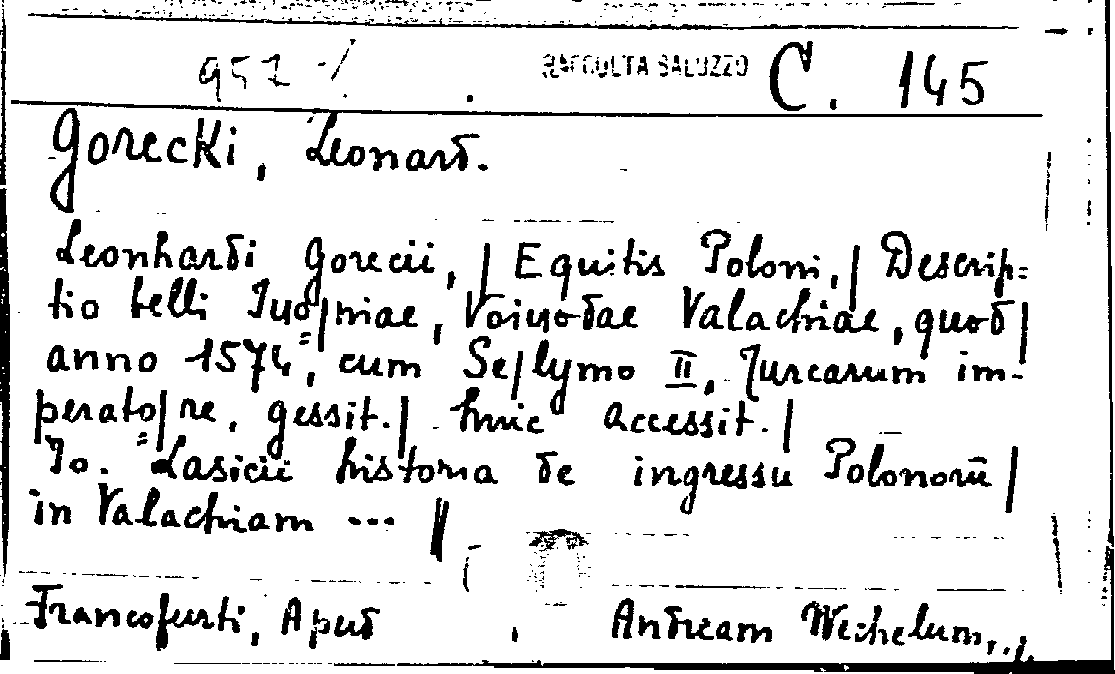 957 -/ RACCOLTA SALUZZO C. 145
Gorecki, Leonard.
Leonhardi Gorecii, | Equitis Poloni, | Descrip=
tio belli Iuo=|niae, Voiuodae Valachiae, quod |
anno 1574, cum Se|lymo II, Turcarum im-
perato=|re, gessit. | huic accessit. |
Io. Lasicii historia de ingressu Polonorū |
in Valachiam ... ||
Francofurti, Apud , Andream Wechelum,